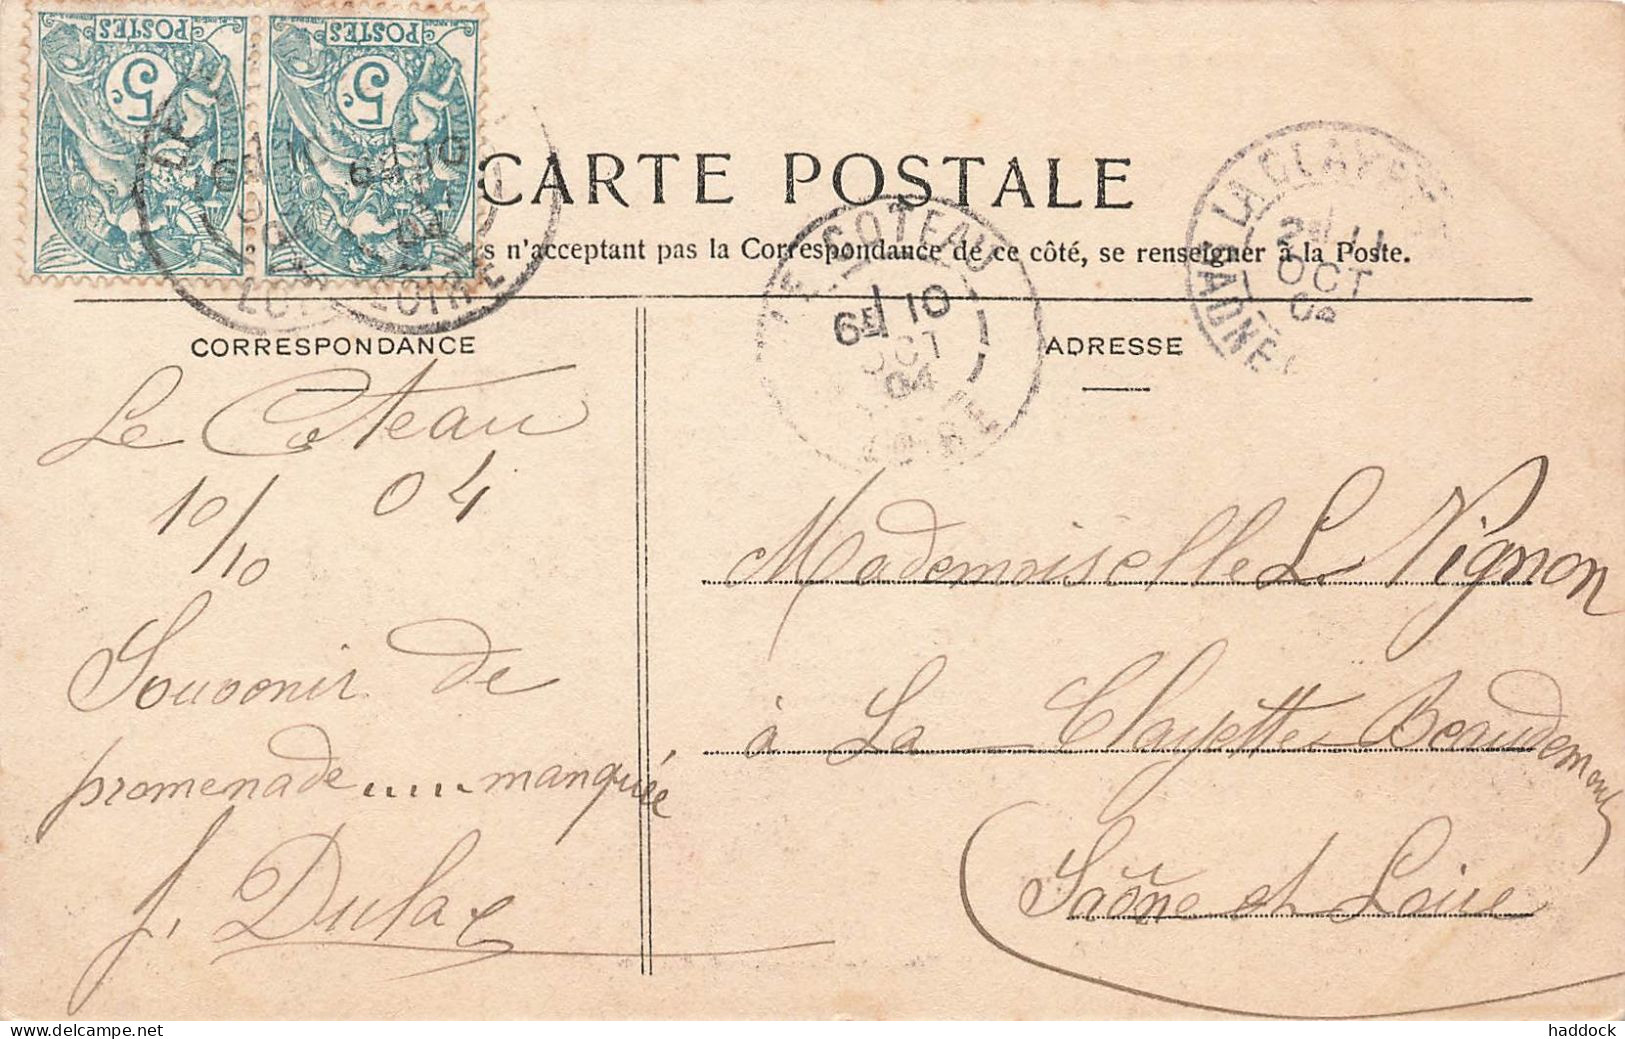 POSTES POSTES
5c 5c
CARTE POSTALE
s n'acceptant pas la Correspondance de ce côté, se renseigner à la Poste.
LE COTEAU
6E 10
OCT
04
LOIRE
LA CLAYETTE
2E 11
OCT
04
CORRESPONDANCE
ADRESSE
Le Coteau
10/10 04
Souvenir de
promenade ..... manquée
J. Dulac
Mademoiselle L. Vignon
à La Clayette Beaudemont
Saône et Loire
haddock